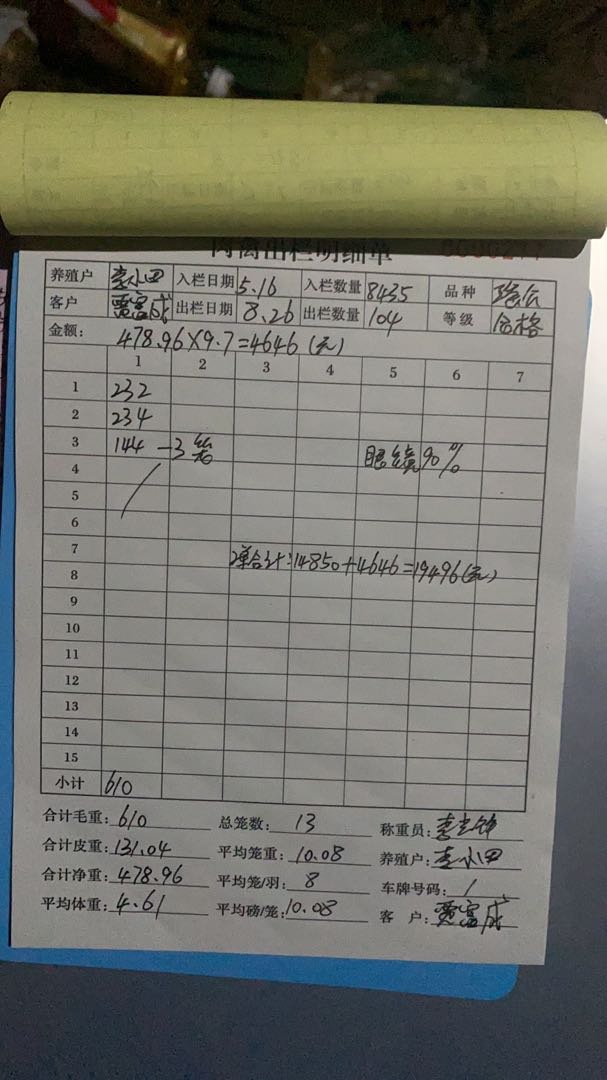 肉禽出栏明细单
养殖户 李小田 入栏日期 5.16 入栏数量 8435 品种
客户 贾富成 出栏日期 8.26 出栏数量 104 等级 合格
金额: 478.96×9.7=4646(元)
1 2 3 4 5 6 7
1 232
2 234
3 144 -3笼 90%
4
5
6
7 2单合计:14850+4646=19496(元)
8
9
10
11
12
13
14
15
小计 610
合计毛重: 610 总笼数: 13 称重员:
合计皮重: 131.04 平均笼重: 10.08 养殖户: 李小田
合计净重: 478.96 平均笼/羽: 8 车牌号码: /
平均体重: 4.61 平均磅/笼: 10.08 客 户: 贾富成